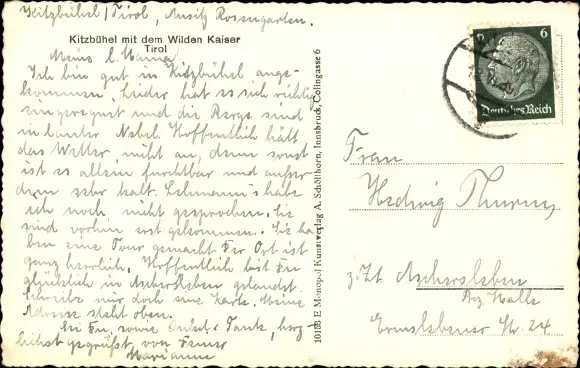 Kitzbühel/Tirol, Ansitz Rosengarten.
Kitzbühel mit dem Wilden Kaiser
Tirol
Meine l. Mama
Ich bin gut in Kitzbühel ange-
kommen. Leider hat es sich richtig
eingeregnet und die Berge sind
in lauter Nebel. Hoffentlich hält
das Wetter nicht an, denn sonst
ist es allein furchtbar und außer-
dem sehr kalt. Lehmann's habe
ich noch nicht gesprochen. Sie
sind vorhin erst gekommen. Sie ha-
ben eine Tour gemacht. Der Ort ist
ganz herrlich. Hoffentlich bist Du
glücklich in Aschersleben gelandet.
Schreibe mir doch eine Karte. Meine
Adresse steht oben.
Sei Du, sowie Onkel u. Tante, herz-
lichst gegrüßt, von Deiner
Marianne
10183 E Monopol Kunstverlag A. Schöllhorn, Innsbruck, Colingasse 6
6
Deutsches Reich
Frau
Hedwig
z. Zt. Aschersleben
Bez. Halle
Ermslebener Str. 24